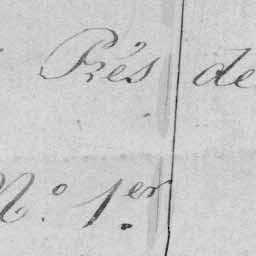 Prés de
N.º 1.er